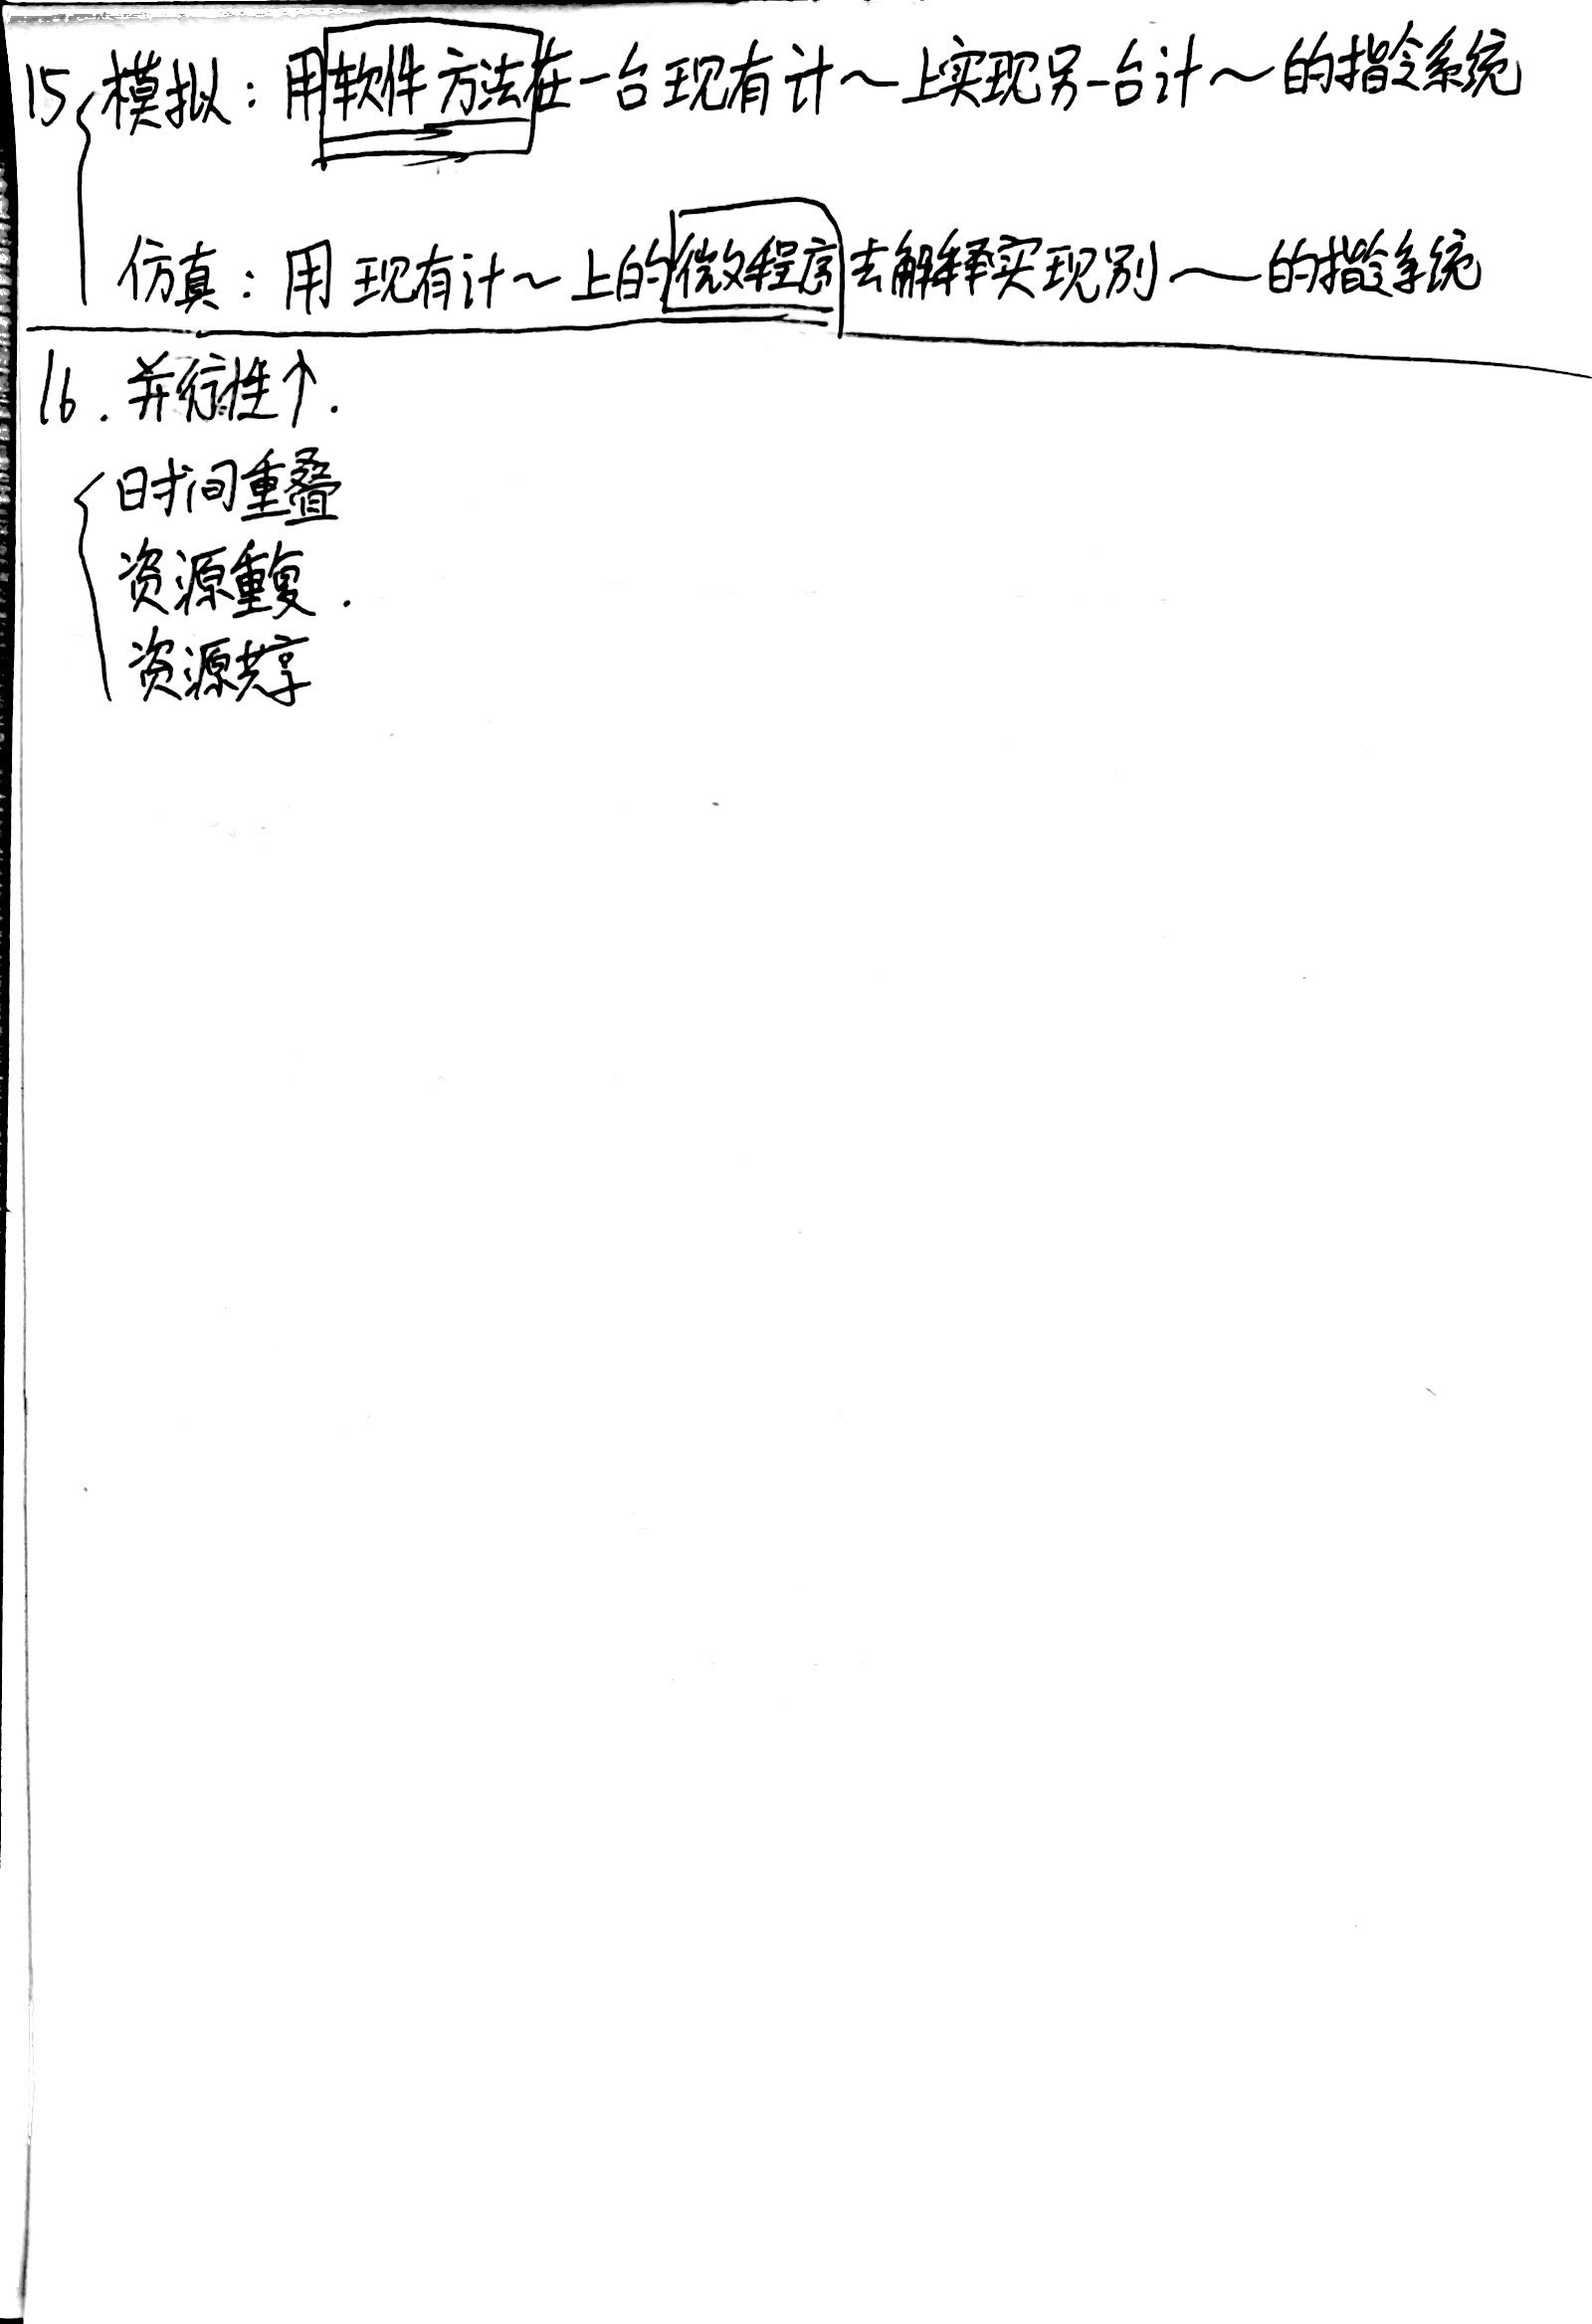 15 模拟：用软件方法在一台现有计～上实现另一台计～的指令系统
仿真：用现有计～上的微程序去解释实现别～的指令系统
16. 并行性↑.
时间重叠
资源重复.
资源共享